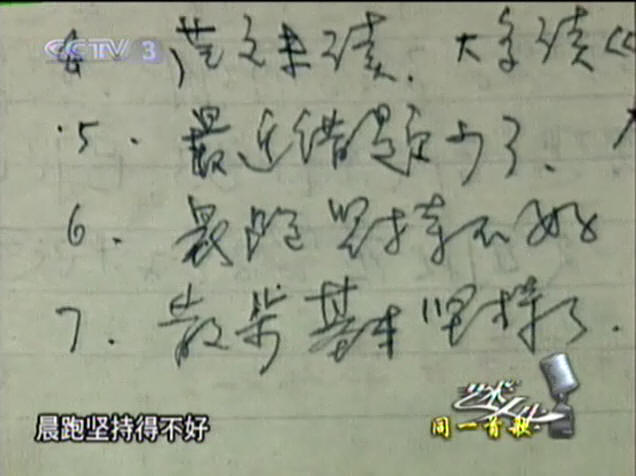 CCTV 3
范文未读. 大多读《
5. 最近错题少了.
6. 晨跑坚持不好
7. 散步基本坚持了.
晨跑坚持得不好
艺术人生
同一首歌